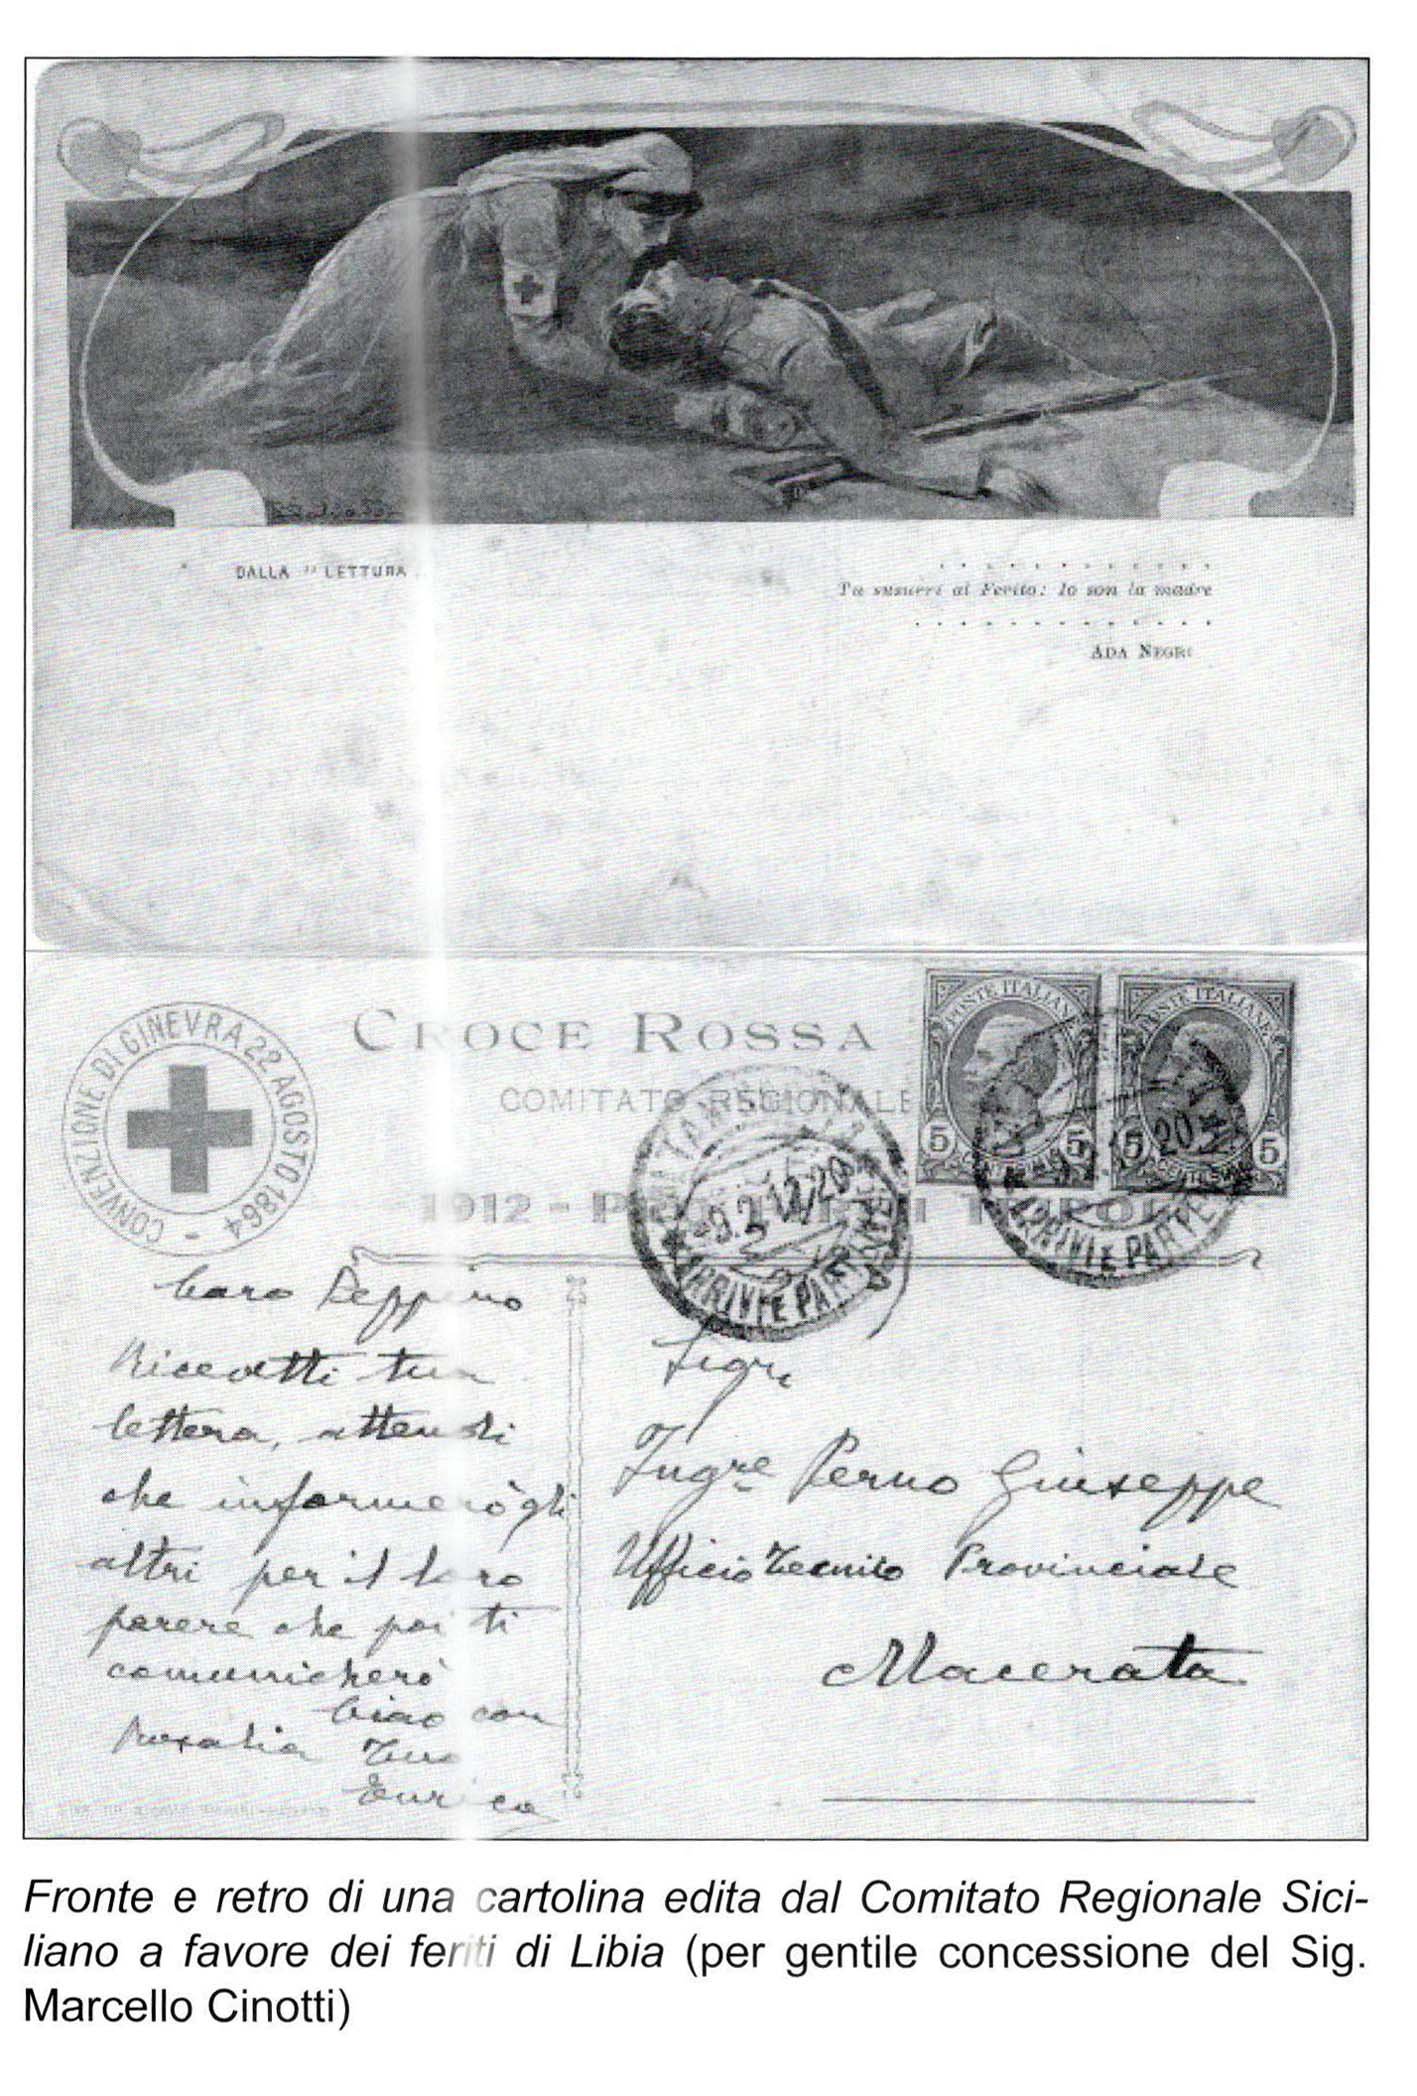 DALLA " LETTURA
Tu susurri al Ferito: Io son la madre
ADA NEGRI
CONVENZIONE DI GINEVRA 22 AGOSTO 1864 -
CROCE ROSSA
COMITATO REGIONALE
1912 - PRO FERITI DI TRIPOLI
POSTE ITALIANE
5 CENTESIMI 5
POSTE ITALIANE
5 CENTESIMI 5
-9.2.12/20
ARRIVI E PARTENZE
20
ARRIVI E PARTENZE
Caro Peppino
Ricevetti tua
lettera, attendi
che informerò gli
altri per il loro
parere che poi ti
comunicherò
Ciao con
Rosalia Tuo
Enrico
Sigr
Ingre Perno Giuseppe
Ufficio Tecnico Provinciale
Macerata
Fronte e retro di una cartolina edita dal Comitato Regionale Sici-
liano a favore dei feriti di Libia (per gentile concessione del Sig.
Marcello Cinotti)